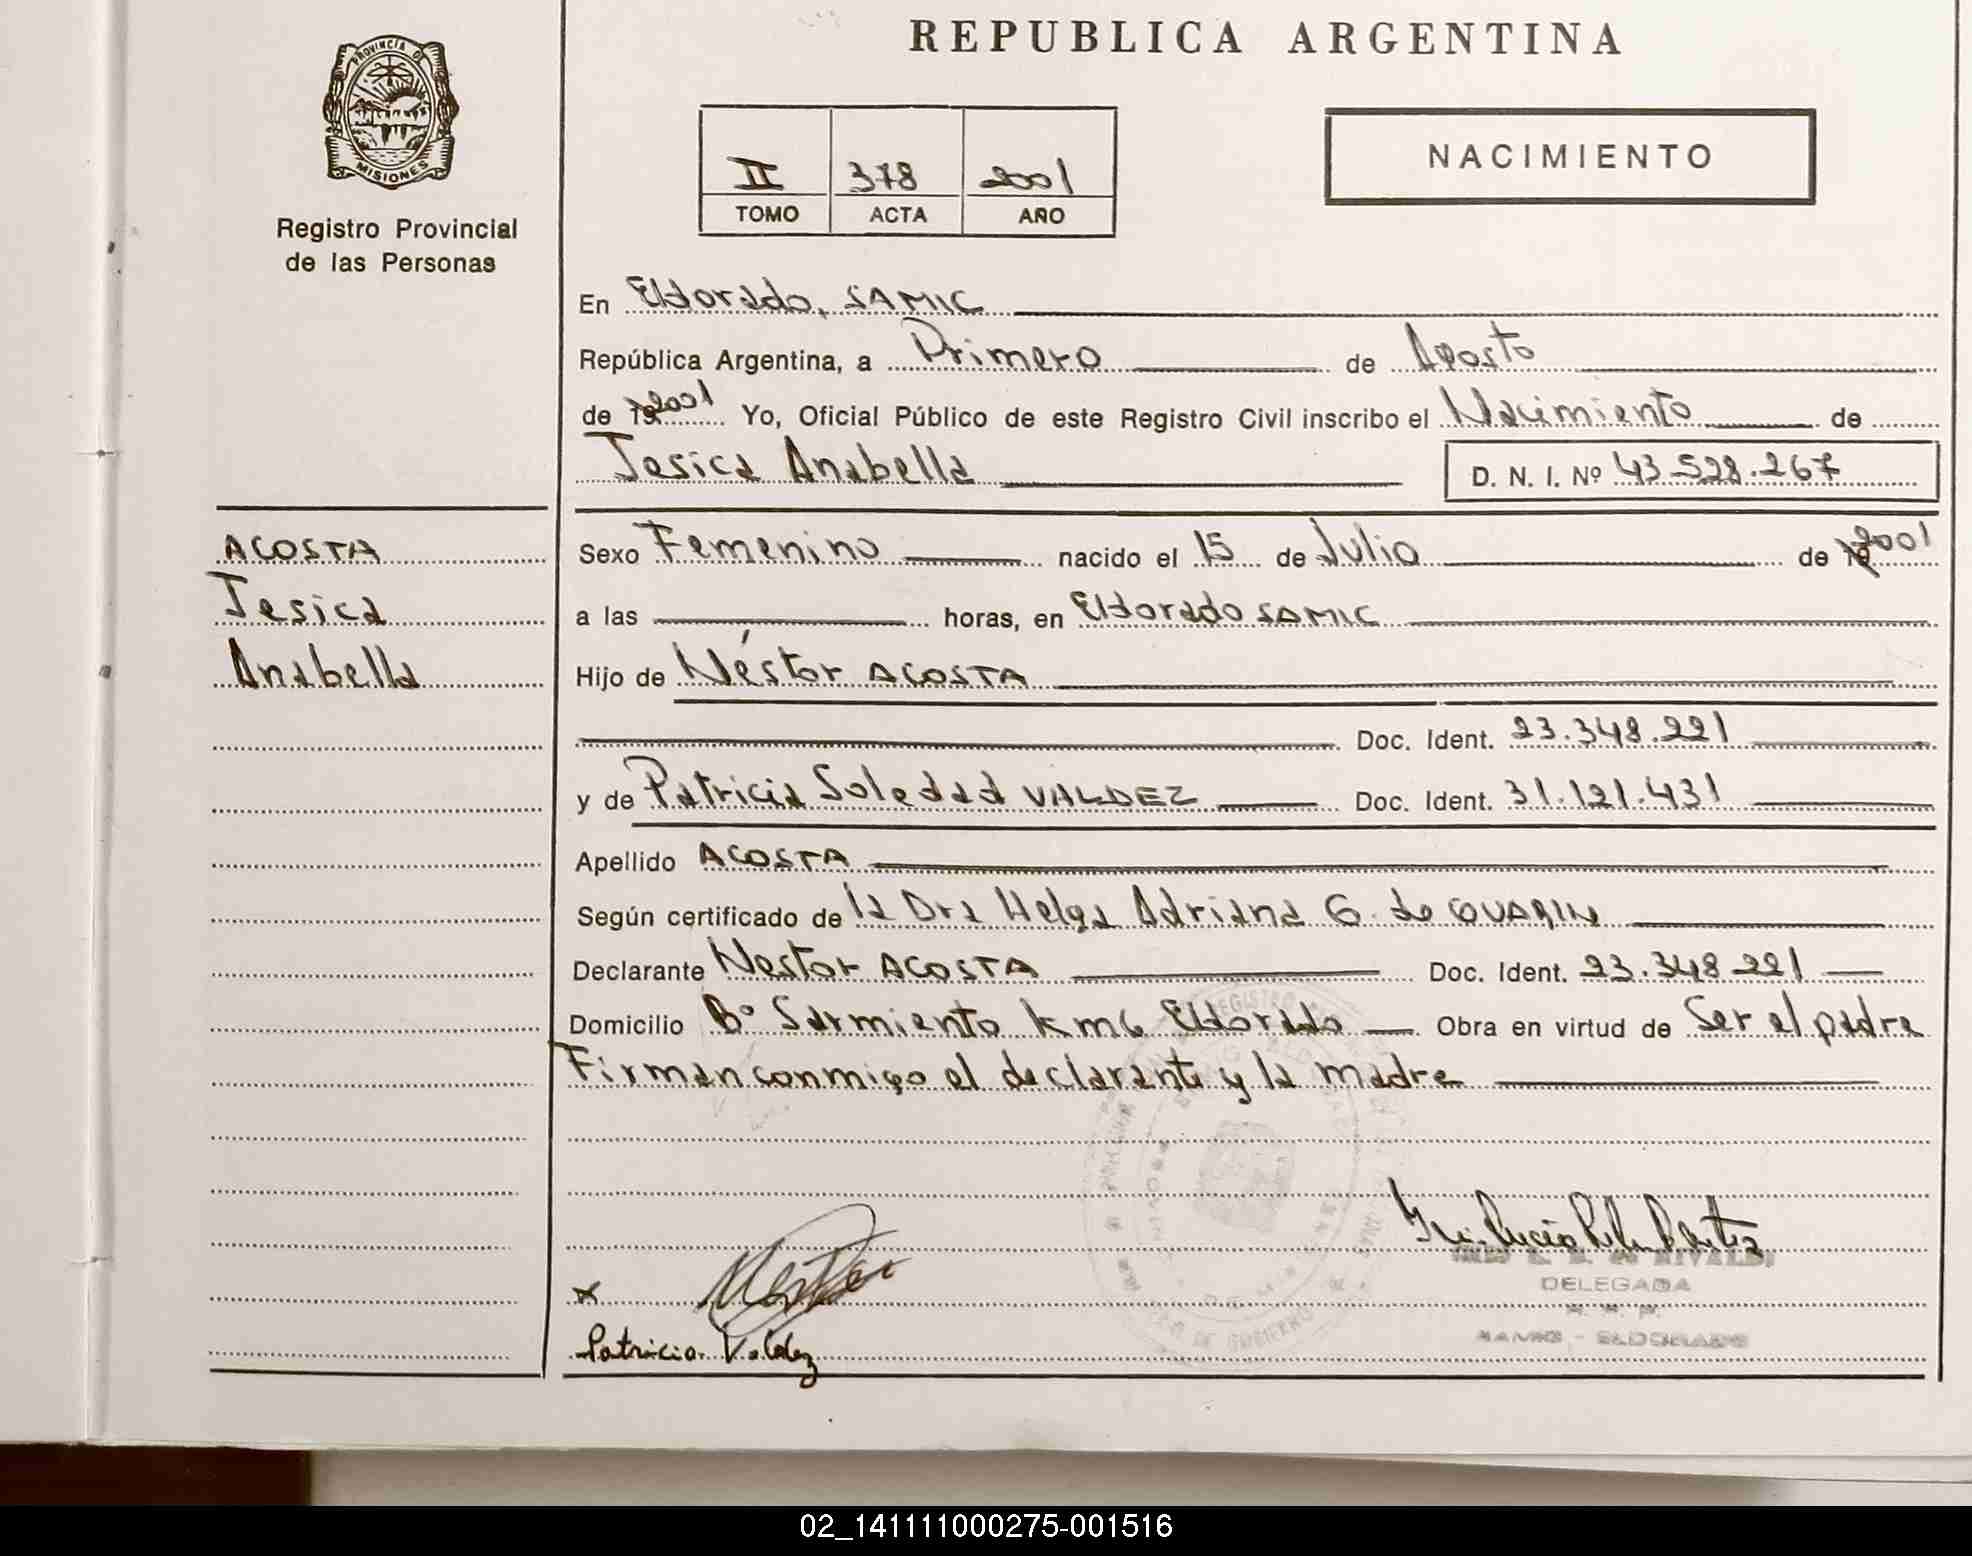 REPUBLICA ARGENTINA
PROVINCIA DE
MISIONES
Registro Provincial
de las Personas
II 378 2001
TOMO ACTA AÑO
NACIMIENTO
En Eldorado, SAMIC
República Argentina, a Primero de Agosto
de 192001 Yo, Oficial Público de este Registro Civil inscribo el Nacimiento de
Jesica Anabella D. N. I. Nº 43.528.267
ACOSTA
Jesica
Anabella
Sexo Femenino nacido el 15 de Julio de 192001
a las horas, en Eldorado SAMIC
Hijo de Néstor ACOSTA
Doc. Ident. 23.348.221
y de Patricia Soledad VALDEZ Doc. Ident. 31.121.431
Apellido ACOSTA
Según certificado de la Dra Helga Adriana G. de
Declarante Nestor ACOSTA Doc. Ident. 23.348.221
Domicilio Bº Sarmiento km 6 Eldorado Obra en virtud de Ser el padre
Firman conmigo el declarante y la madre
x
Patricia Valdez
DELEGADA
SAMIC - ELDORADO
02_141111000275-001516